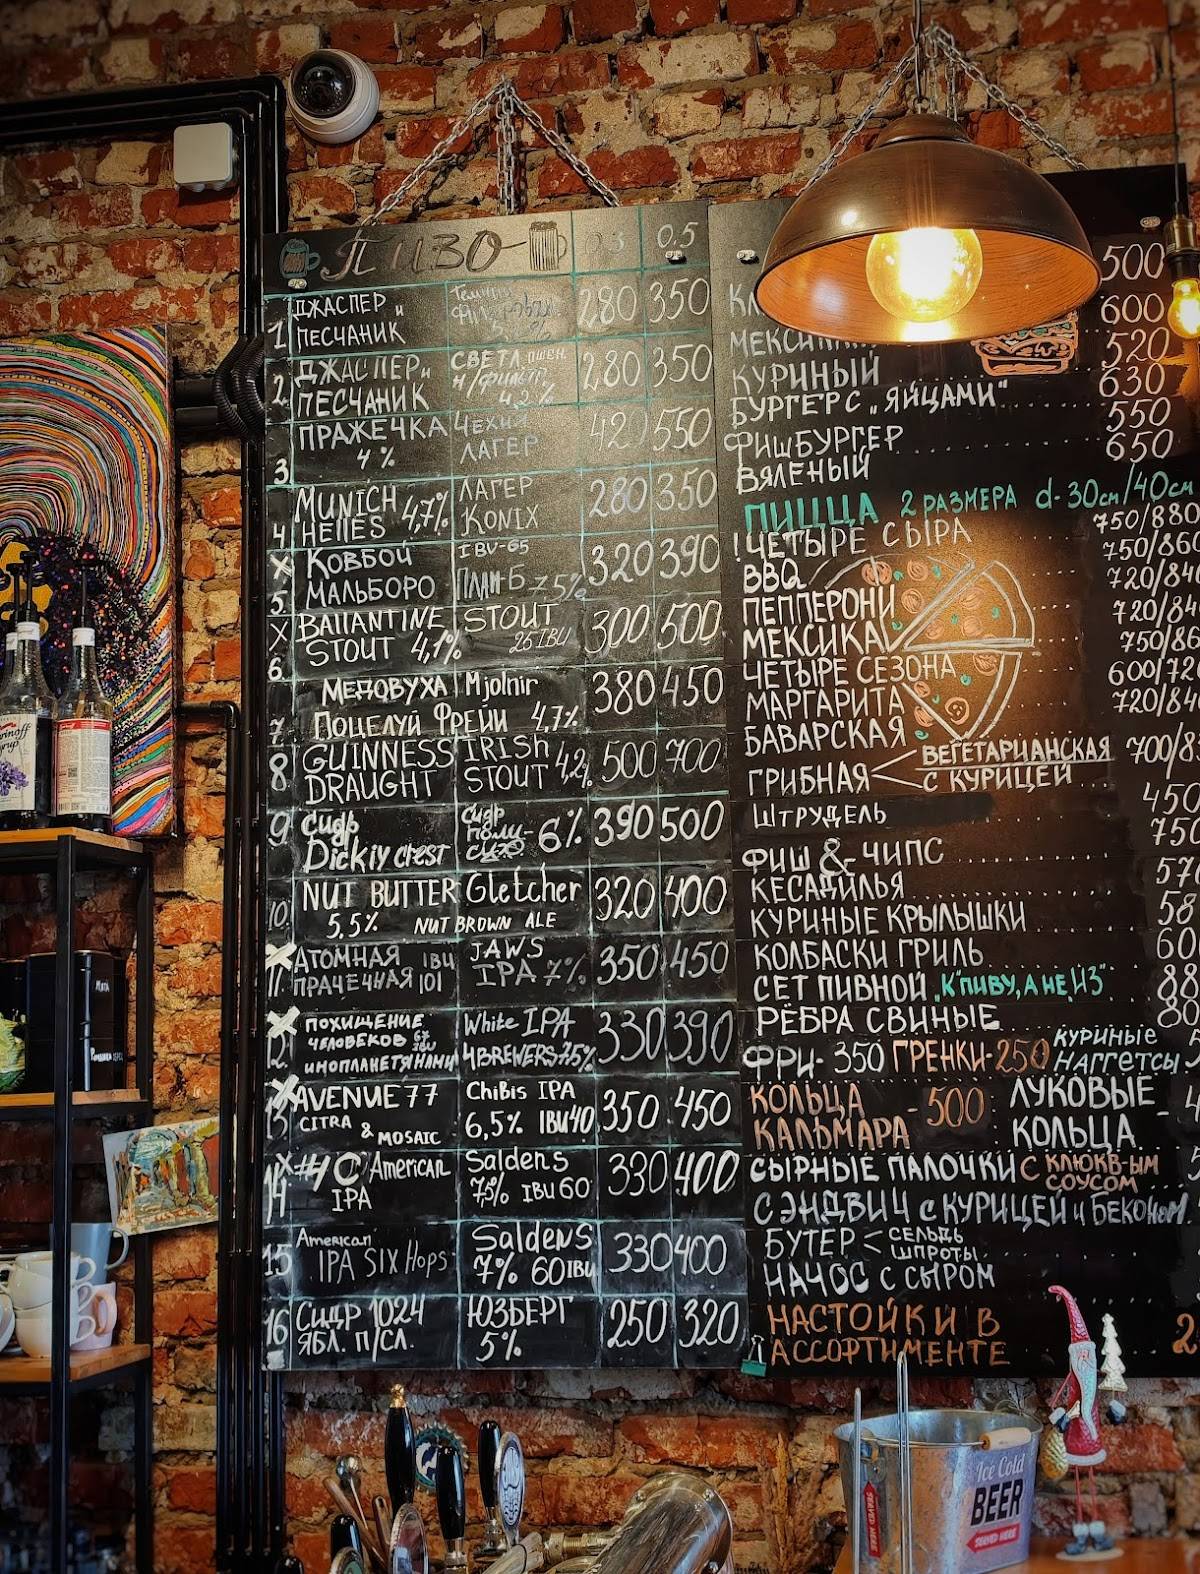 ПИВО 0.3 0.5
1 ДЖАСПЕР и 280 350
ПЕСЧАНИК
2 ДЖАСПЕР и СВЕТЛ 280 350
ПЕСЧАНИК н/фильтр. 4,2%
3 ПРАЖЕЧКА Чехия 420 550
4% ЛАГЕР
4 MUNICH 4,7% ЛАГЕР 280 350
HELLES KONIX
5 КОВБОЙ IBU-65 320 390
МАЛЬБОРО ПЛАН-Б 7.5%
6 BALLANTINE STOUT 300 500
STOUT 4,1% 25 IBU
7 МЕДОВУХА Mjolnir 380 450
ПОЦЕЛУЙ ФРЕЙИ 4,7%
8 GUINNESS IRISH 4,2% 500 700
DRAUGHT STOUT
9 СИДР СИДР ПОЛУ- 6% 390 500
Dickiy crest СУХО
10 NUT BUTTER Gletcher 320 400
5,5% NUT BROWN ALE
11 АТОМНАЯ IBU JAWS 350 450
ПРАЧЕЧНАЯ 101 IPA 7%
12 ПОХИЩЕНИЕ White IPA 330 390
ЧЕЛОВЕКОВ
ИНОПЛАНЕТЯНАМИ 4BREWERS 7.5%
13 AVENUE 77 CHIBIS IPA 350 450
CITRA & MOSAIC 6,5% IBU 40
14 American Saldens 330 400
IPA 7.5% IBU 60
15 American Saldens 330 400
IPA SIX Hops 7% 60 IBU
16 СИДР 1024 ЮЗБЕРГ 250 320
ЯБЛ. П/СЛ. 5%
500
600
520
КУРИНЫЙ 630
БУРГЕР С „ЯЙЦАМИ" 550
ФИШБУРГЕР 650
ВЯЛЕНЫЙ
ПИЦЦА 2 РАЗМЕРА d-30см/40см
! ЧЕТЫРЕ СЫРА 750/880
BBQ
ПЕППЕРОНИ
МЕКСИКА
ЧЕТЫРЕ СЕЗОНА
МАРГАРИТА
БАВАРСКАЯ
ГРИБНАЯ ВЕГЕТАРИАНСКАЯ
С КУРИЦЕЙ
ШТРУДЕЛЬ
ФИШ & ЧИПС
КЕСАДИЛЬЯ
КУРИНЫЕ КРЫЛЫШКИ
КОЛБАСКИ ГРИЛЬ
СЕТ ПИВНОЙ „К "ПИВУ, А НЕ ИЗ"
РЁБРА СВИНЫЕ
ФРИ - 350 ГРЕНКИ - 250 КУРИНЫЕ
НАГГЕТСЫ
КОЛЬЦА - 500 ЛУКОВЫЕ
КАЛЬМАРА КОЛЬЦА
СЫРНЫЕ ПАЛОЧКИ С КЛЮКВ-ЫМ
СОУСОМ
СЭНДВИЧ с КУРИЦЕЙ и БЕКОНОМ
БУТЕР СЕЛЬДЬ
ШПРОТЫ
НАЧОС С СЫРОМ
НАСТОЙКИ В
АССОРТИМЕНТЕ
Ice Cold
BEER
SERVED HERE